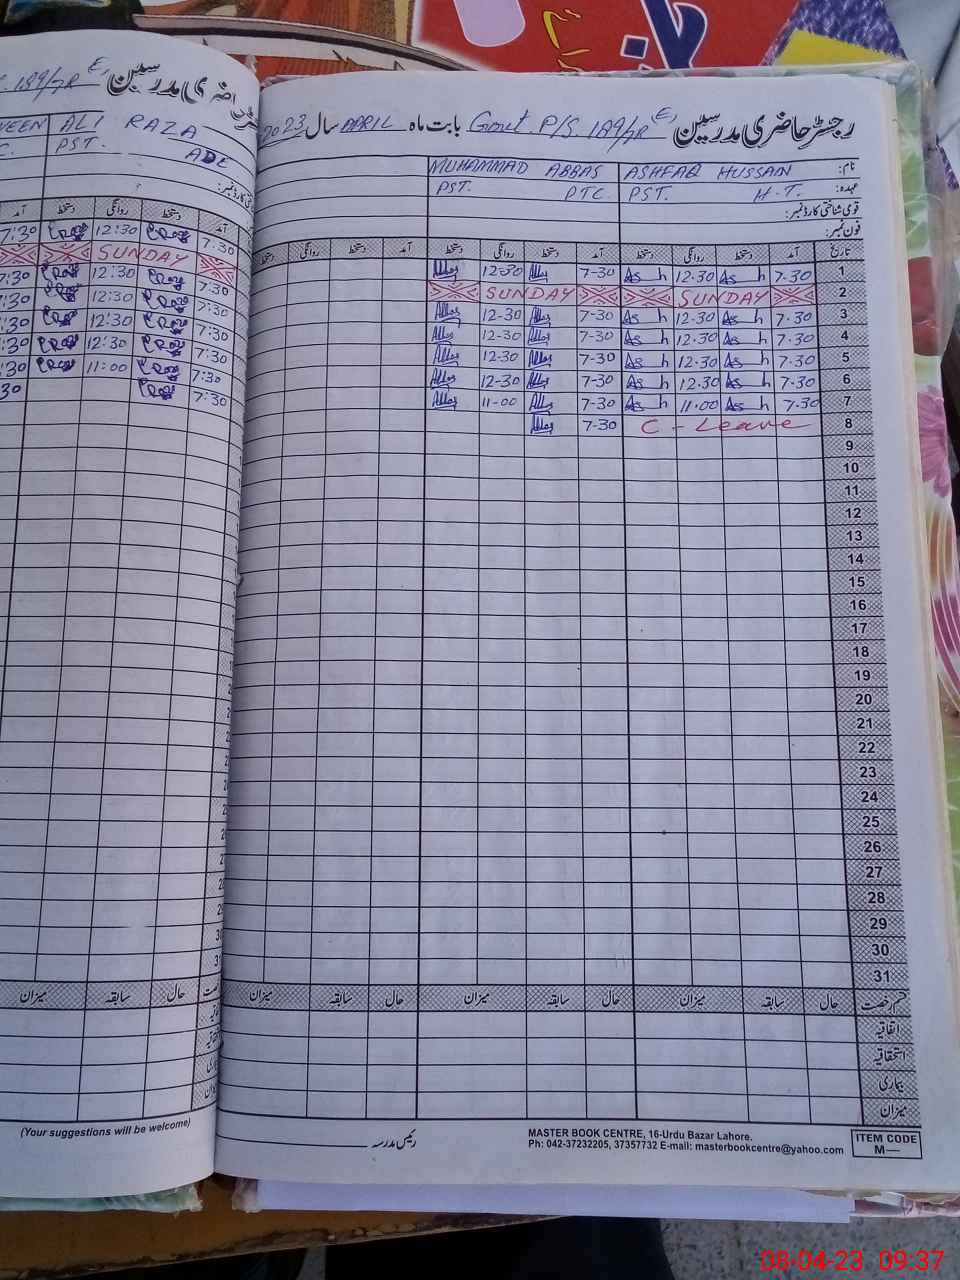 189/7R (E) رجسٹر حاضری مدرسین
ALI RAZA
PST.
آمد دستخط روانگی دستخط آمد
7:30 12:30 7.30
SUNDAY
7:30 12:30 7:30
7:30 12:30 7:30
7:30 12:30 7:30
7:30 12:30 7:30
7:30 11:00 7:30
7:30
میزان سابقہ حال
(Your suggestions will be welcome)
رجسٹر حاضری مدرسین Govt. P/S. 189/7R (E) بابت ماہ APRIL سال 2023
نام: ASHFAQ HUSSAIN MUHAMMAD ABBAS
عہدہ: PST. H.T. PST. PTC.
قومی شناختی کارڈ نمبر:
فون نمبر:
تاریخ آمد دستخط روانگی دستخط آمد دستخط روانگی دستخط آمد دستخط روانگی دستخط
1 7.30 As h 12.30 As h 7-30 12-30
2 SUNDAY SUNDAY
3 7.30 As h 12.30 As h 7-30 12-30
4 7.30 As h 12.30 As h 7-30 12-30
5 7.30 As h 12.30 As h 7-30 12-30
6 7.30 As h 12.30 As h 7-30 12-30
7 7.30 As h 11.00 As h 7-30 11-00
8 C - Leave 7-30
9
10
11
12
13
14
15
16
17
18
19
20
21
22
23
24
25
26
27
28
29
30
31
قسم رخصت حال سابقہ میزان حال سابقہ میزان حال سابقہ میزان
اتفاقیہ
استحقاقیہ
بیماری
میزان
رئیس مدرسہ
MASTER BOOK CENTRE, 16-Urdu Bazar Lahore.
Ph: 042-37232205, 37357732 E-mail: masterbookcentre@yahoo.com
ITEM CODE
M—
08-04-23 09:37